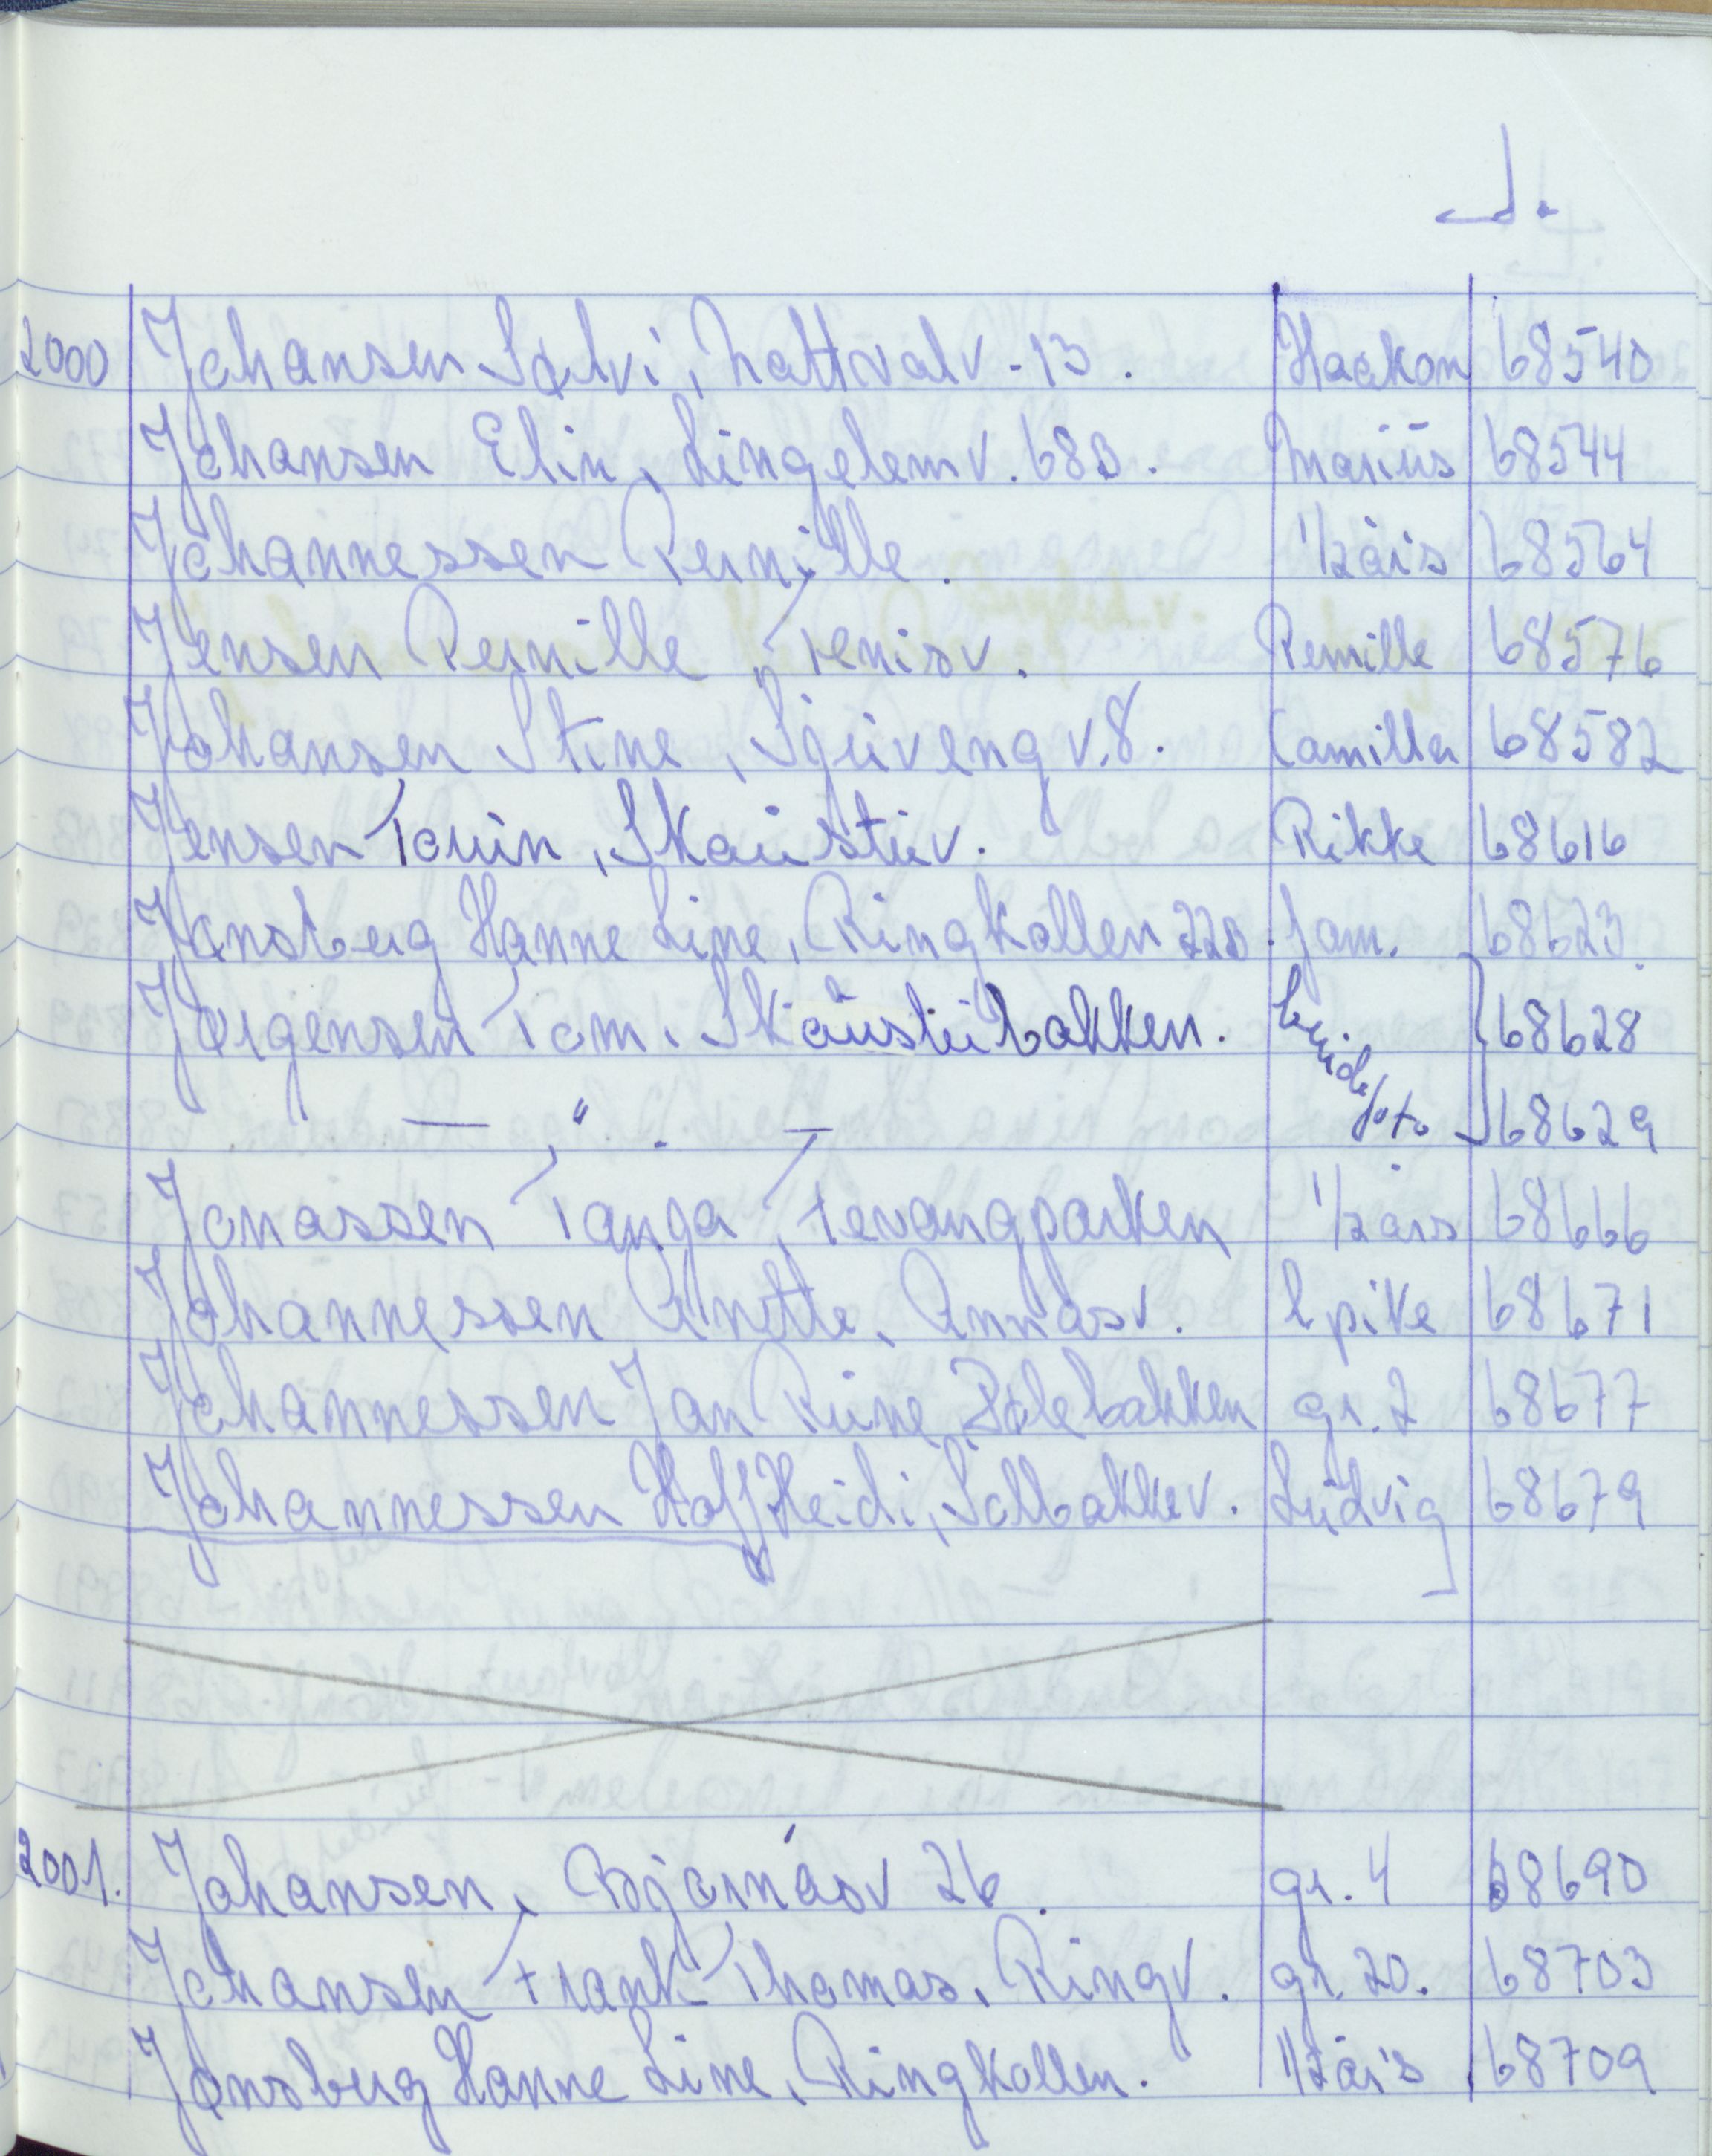 J.
2000 Johansen Sølvi, Nattvalv. 13. Haakon 68540
Johansen Elin, Lingelemv. 68B. Marius 68544
Johannessen Pernille. 1/2års 68564
Jensen Pernille, Frenisv. Pernille 68576
Johansen Stine, Sjuvengv. 8. Camilla 68582
Jensen Touin, Skaustuv. Rikke 68616
Jønsberg Hanne Line, Ringkollen 22B. fam. 68623.
Jørgensen Tom. Skaustubakken. brudefoto 68628
— " — 68629
Jonassen Tanja, Tevangparken 1/2års 68666
Johannessen Anette, Annasv. l pike 68671
Johannessen Jan Rune, Bolebakken gr. 2 68677
Johannessen Hoff Heidi, Solbakkev. Ludvig 68679
2001. Johansen, Bjørnåsv 26. gr. 4 68690
Johansen Frank-Thomas, Ringv. gr. 20. 68703
Jønsberg Hanne Line, Ringkollen. 1/2års 68709